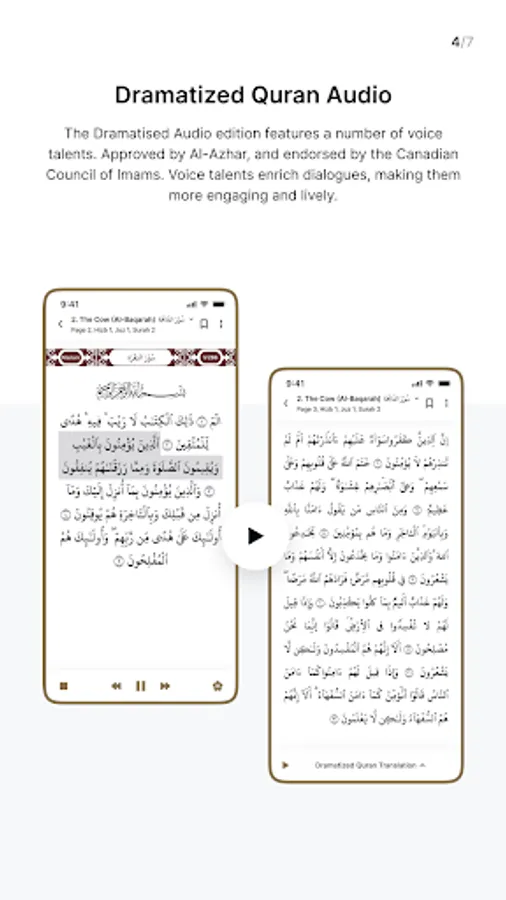 4/7
Dramatized Quran Audio
The Dramatised Audio edition features a number of voice
talents. Approved by Al-Azhar, and endorsed by the Canadian
Council of Imams. Voice talents enrich dialogues, making them
more engaging and lively.
9:41
2. The Cow (Al-Baqarah)
Page 2, Hizb 1, Juz 1, Surah 2
الٓمٓ ۝ ذَٰلِكَ ٱلْكِتَٰبُ لَا رَيْبَ ۛ فِيهِ ۛ هُدًى
لِّلْمُتَّقِينَ ۝ ٱلَّذِينَ يُؤْمِنُونَ بِٱلْغَيْبِ
وَيُقِيمُونَ ٱلصَّلَوٰةَ وَمِمَّا رَزَقْنَٰهُمْ يُنفِقُونَ
۝ وَٱلَّذِينَ يُؤْمِنُونَ بِمَآ أُنزِلَ إِلَيْكَ وَمَآ
أُنزِلَ مِن قَبْلِكَ وَبِٱلْءَاخِرَةِ هُمْ يُوقِنُونَ ۝
أُو۟لَٰٓئِكَ عَلَىٰ هُدًى مِّن رَّبِّهِمْ ۖ وَأُو۟لَٰٓئِكَ هُمُ
ٱلْمُفْلِحُونَ ۝
9:41
2. The Cow (Al-Baqarah)
Page 3, Hizb 1, Juz 1, Surah 2
إِنَّ ٱلَّذِينَ كَفَرُوا۟ سَوَآءٌ عَلَيْهِمْ ءَأَنذَرْتَهُمْ أَمْ لَمْ
تُنذِرْهُمْ لَا يُؤْمِنُونَ ۝ خَتَمَ ٱللَّهُ عَلَىٰ قُلُوبِهِمْ وَعَلَىٰ
سَمْعِهِمْ ۖ وَعَلَىٰٓ أَبْصَٰرِهِمْ غِشَٰوَةٌ ۖ وَلَهُمْ عَذَابٌ
عَظِيمٌ ۝ وَمِنَ ٱلنَّاسِ مَن يَقُولُ ءَامَنَّا بِٱللَّهِ
وَبِٱلْيَوْمِ ٱلْءَاخِرِ وَمَا هُم بِمُؤْمِنِينَ ۝ يُخَٰدِعُونَ
ٱللَّهَ وَٱلَّذِينَ ءَامَنُوا۟ وَمَا يَخْدَعُونَ إِلَّآ أَنفُسَهُمْ وَمَا
يَشْعُرُونَ ۝ فِى قُلُوبِهِم مَّرَضٌ فَزَادَهُمُ ٱللَّهُ مَرَضًا ۖ
وَلَهُمْ عَذَابٌ أَلِيمٌۢ بِمَا كَانُوا۟ يَكْذِبُونَ ۝ وَإِذَا قِيلَ
لَهُمْ لَا تُفْسِدُوا۟ فِى ٱلْأَرْضِ قَالُوٓا۟ إِنَّمَا نَحْنُ
مُصْلِحُونَ ۝ أَلَآ إِنَّهُمْ هُمُ ٱلْمُفْسِدُونَ وَلَٰكِن لَّا
يَشْعُرُونَ ۝ وَإِذَا قِيلَ لَهُمْ ءَامِنُوا۟ كَمَآ ءَامَنَ
ٱلنَّاسُ قَالُوٓا۟ أَنُؤْمِنُ كَمَآ ءَامَنَ ٱلسُّفَهَآءُ ۗ أَلَآ إِنَّهُمْ
هُمُ ٱلسُّفَهَآءُ وَلَٰكِن لَّا يَعْلَمُونَ ۝
Dramatized Quran Translation